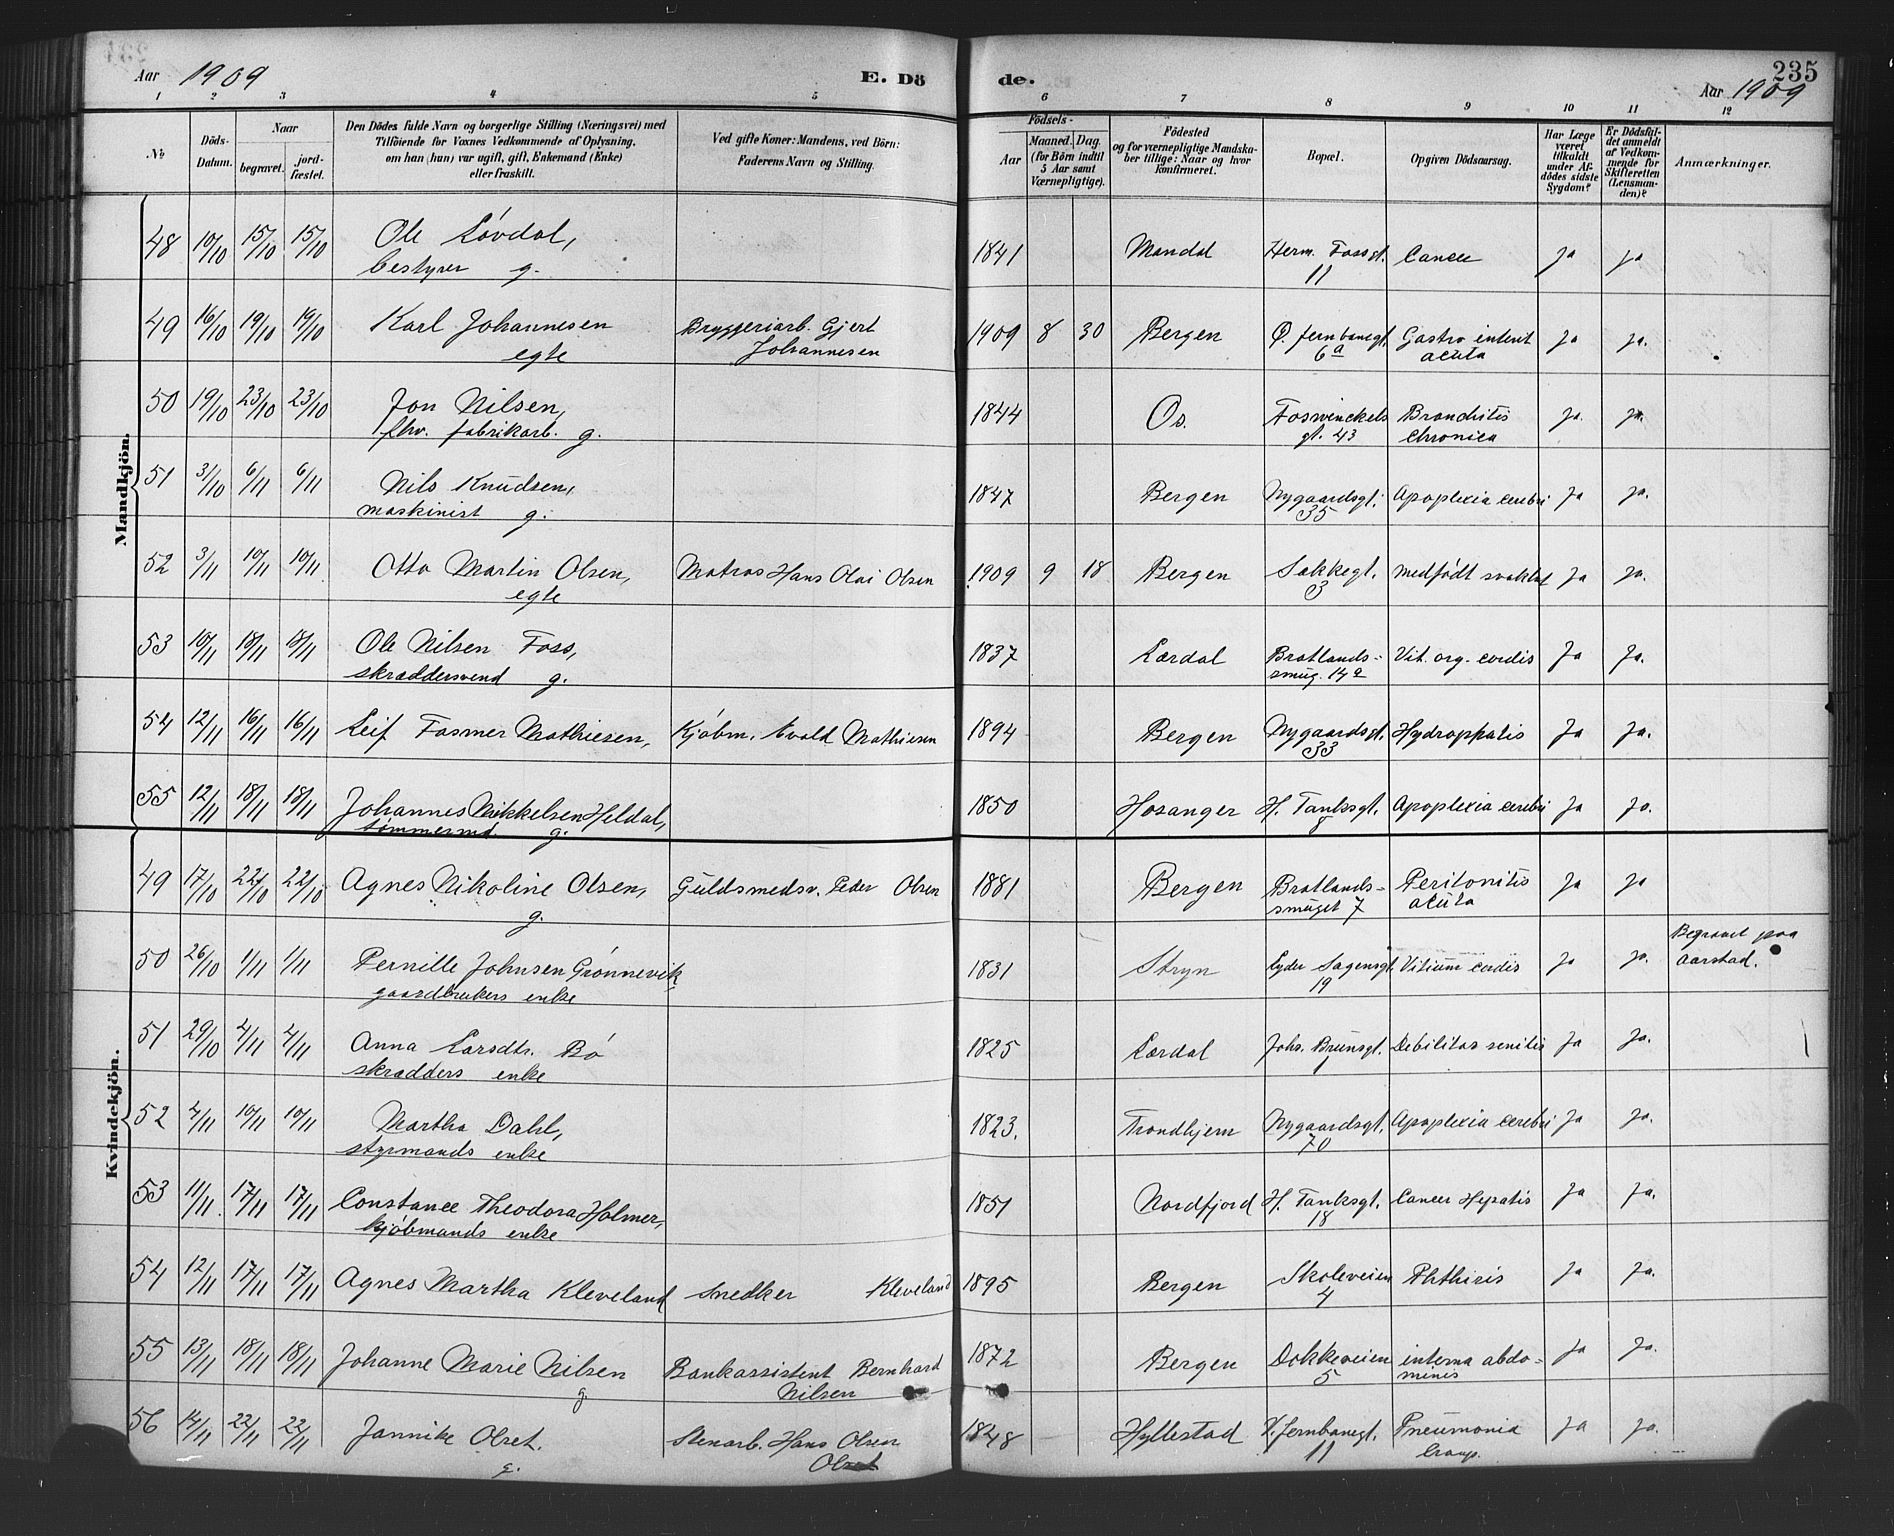 Aar 1909 E. Dö de. Aar 1909 235
1 2 3 4 5 6 7 8 9 10 11 12
No.
Döds-Datum.
Naar
begravet.
jord-fæstet.
Den Dödes fulde Navn og borgerlige Stilling (Næringsvei) med
Tilföiende for Voxnes Vedkommende af Oplysning,
om han (hun) var ugift, gift, Enkemand (Enke)
eller fraskilt.
Ved gifte Koner: Mandens, ved Börn:
Faderens Navn og Stilling.
Födsels-
Aar
Maaned. Dag.
(for Börn indtil
5 Aar samt
Værnepligtige).
Födested
og for værnepligtige Mandska-
ber tillige: Naar og hvor
konfirmeret.
Bopæl.
Opgiven Dödsaarsag.
Har Læge
været
tilkaldt
under Af-
dödes sidste
Sygdom?
Er Dödsfal-
det anmeldt
af Vedkom-
mende for
Skifteretten
(Lensman-
den)?
Anmærkninger.
Mandkjön.
48 10/10 15/10 15/10 Ole Lóvdal, 1841 Mandal Herm. Fossgt. Cancer Ja Ja
bestyrer g. 11
49 16/10 19/10 19/10 Karl Johannesen Bryggeriarb. Gjert 1909 8 30 Bergen Ø. Jernbanegt. Gastro intent Ja Ja.
egte Johannesen 6a acuta
50 19/10 23/10 23/10 Jon Nilsen, 1844 Os. Foswinckels Bronchitis Ja. Ja.
fhv. fabrikarb. g. gt. 43 Chronica
51 31/10 6/11 6/11 Nils Knudsen, 1847 Bergen Nygaardsgt. Apoplexia cerebri Ja Ja.
maskinist g. 35
52 3/11 10/11 10/11 Otto Martin Olsen, Matros Hans Olai Olsen 1909 9 18 Bergen Sakkegt. medfødt svakhet Ja Ja.
egte 3
53 10/11 18/11 18/11 Ole Nilsen Foss, 1837 Lærdal Bratlands- Vit. org. cordis Ja Ja.
skræddersvend g. smug. 14a
54 12/11 16/11 16/11 Leif Fasmer Mathiesen, Kjøbm. Evald Mathiesen 1894 Bergen Nygaardsgt. Ja Ja.
33
55 12/11 18/11 18/11 Johannes Mikkelsen Heldal, 1850 Hosanger H. Tanksgt. Apoplexia cerebri Ja Ja.
tømmermd. g. 8
Kvindekjön.
49 17/10 22/10 22/10 Agnes Nikoline Olsen, Guldsmedsv. Peder Olsen 1881 Bergen Bratlands- Peritonitis Ja Ja
g. smuget 7 acuta
50 26/10 1/11 1/11 Pernille Johnsen Grønnevik 1831 Stryn Lyder Sagensgt. Vitium cordis Ja Ja. Begravet paa
gaardbrukers enke 19 Aarstad.
51 29/10 4/11 4/11 Anna Larsdtr. Bø 1825 Lærdal Johs. Brunsgt. Debilitas senilis Ja Ja.
skrædders enke
52 4/11 10/11 10/11 Martha Dahl, 1823. Trondhjem Nygaardsgt. Apoplexia cerebri Ja Ja.
styrmands enke 70
53 11/11 17/11 17/11 Constance Theodora Holmer, 1851 Nordfjord H. Tanksgt. Cancer Hepatis Ja Ja.
kjøbmands enke 18
54 12/11 17/11 17/11 Agnes Martha Kleveland Snedker Kleveland 1895 Bergen Skoleveien Phthisis Ja Ja.
4
55 13/11 18/11 18/11 Johanne Marie Nilsen Bankassistent Bernhard 1872 Bergen Dokkeveien interna abdo- Ja Ja.
g. Nilsen 5 minis
56 14/11 22/11 22/11 Jannike Olset. Stenarb. Hans Olsen 1848 Hyllestad V. Jernbanegt. Pneumonia Ja Ja.
g. Olset 11 Croup.